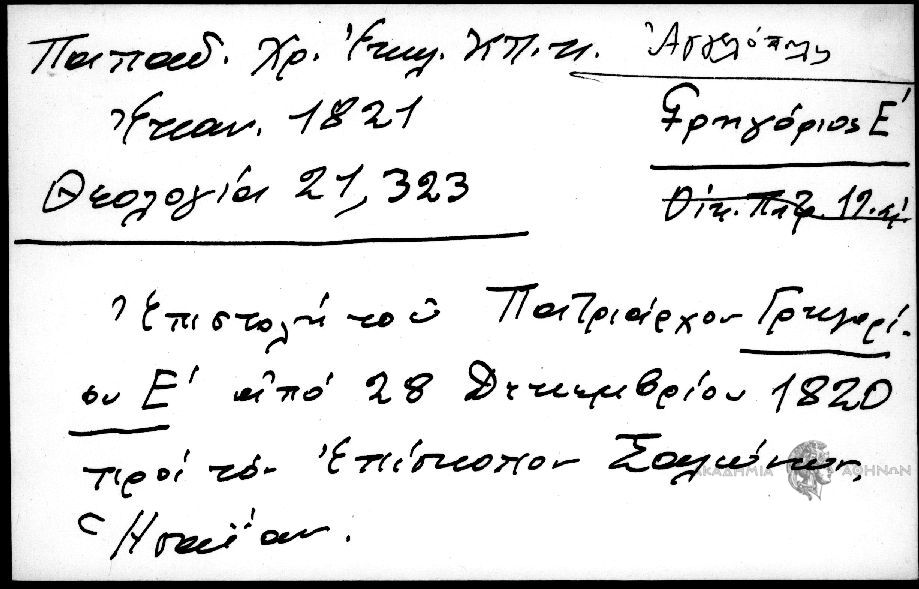 Παπαδ. Χρ. Ἐκκλ. Κπ.κ. Ἀγγελόπλ
Ἐπαν. 1821
Θεολογία 21, 323
Γρηγόριος Ε΄
Οἰκ. Πατρ. 19.
Ἐπιστολὴ τοῦ Πατριάρχου Γρηγορί-
ου Ε΄ ἀπὸ 28 Δεκεμβρίου 1820
πρὸς τὸν Ἐπίσκοπον Σαλώνων,
Ἡσαΐαν.
ΑΚΑΔΗΜΙΑ ΑΘΗΝΩΝ